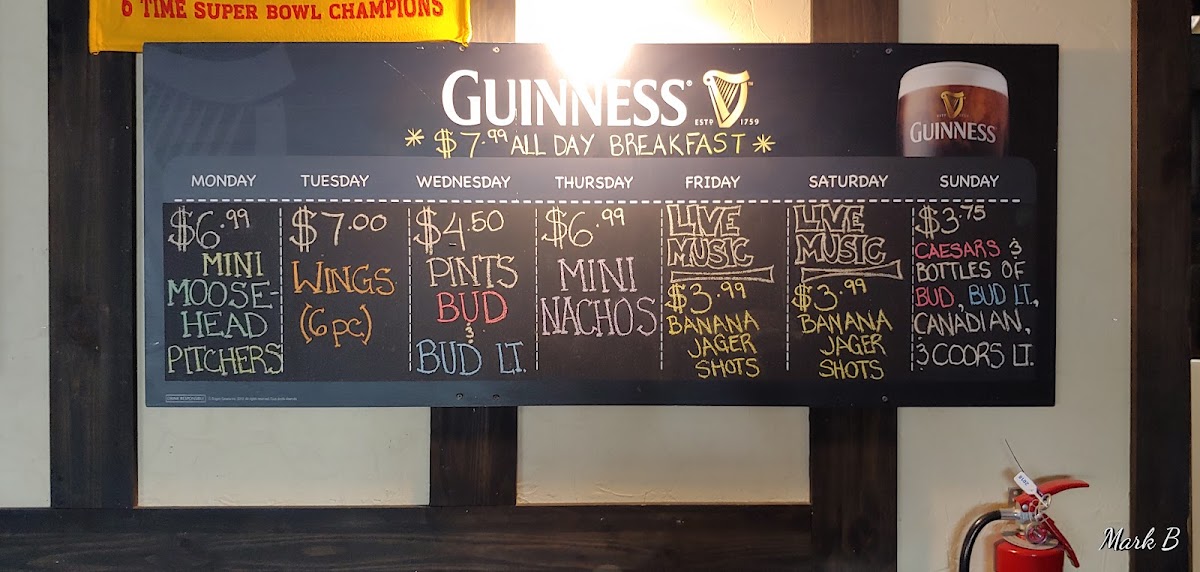 6 TIME SUPER BOWL CHAMPIONS
GUINNESS
ESTD 1759
* $7.99 ALL DAY BREAKFAST *
GUINNESS
MONDAY
$6.99
MINI
MOOSE-
HEAD
PITCHERS
TUESDAY
$7.00
WINGS
(6pc)
WEDNESDAY
$4.50
PINTS
BUD
&
BUD LT.
THURSDAY
$6.99
MINI
NACHOS
FRIDAY
LIVE
MUSIC
$3.99
BANANA
JAGER
SHOTS
SATURDAY
LIVE
MUSIC
$3.99
BANANA
JAGER
SHOTS
SUNDAY
$3.75
CAESARS &
BOTTLES OF
BUD, BUD LT.,
CANADIAN,
& COORS LT.
Mark B